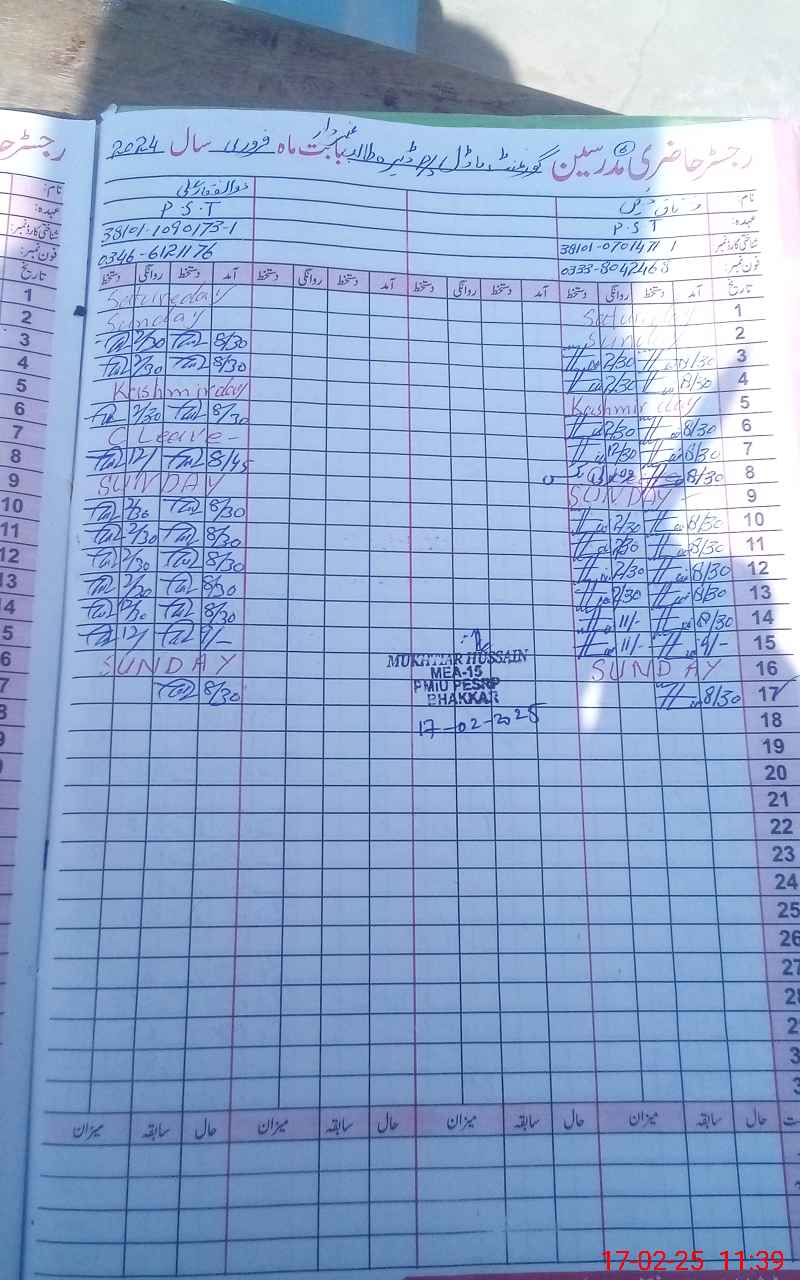 رجسٹر حاضری مدرسین گورنمنٹ ماڈل بابت ماہ فروری سال 2024
نام: ذوالفقار علی
عہدہ: P.S.T P.S.T
شناختی کارڈ نمبر: 38101-0701471 1 38101-1090173-1
فون نمبر: 0333-8042468 0346-6121176
تاریخ آمد دستخط روانگی دستخط آمد دستخط روانگی دستخط آمد دستخط روانگی دستخط آمد دستخط روانگی دستخط
1 Saturday Saturday
2 Sunday Sunday
3 8/30 2/30 8/30 2/30
4 8/30 2/30 8/30 2/30
5 Kashmir day Kashmir day
6 8/30 2/30 8/30 2/30
7 8/30 12/30 C Leave -
8 8/30 8/45 12/
9 SUNDAY SUNDAY
10 8/30 2/30 8/30 2/30
11 8/30 2/30 8/30 2/30
12 8/30 2/30 8/30 2/30
13 8/30 2/30 8/30 2/30
14 8/30 11/- 8/30 12/30
15 9/- 11/- 9/- 12/
16 SUNDAY SUNDAY
17 8/30 8/30
MUKHTIAR HUSSAIN
MEA-15
PMIU PESRP
BHAKKAR
17-02-2025
18
19
20
21
22
23
24
25
26
27
28
حال سابقہ میزان حال سابقہ میزان حال سابقہ میزان حال سابقہ میزان
17-02-25 11:39